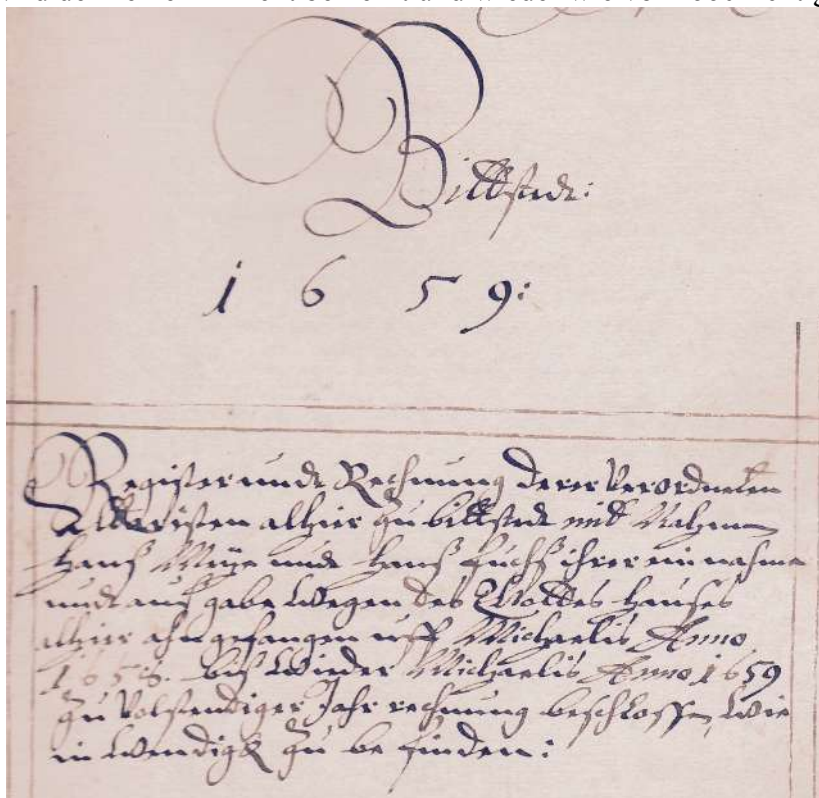 Bittstedt:
1659:
Register unndt Rechnung derer Verordneten
Altaristen alhier zu bittstedt mit Nahmen
Hanß unndt Hanß fuchß ihrer einnahme
undt auß gabe wegen des Gottes Hauses
alhier ahn gefangen uff Michaelis Anno
1658. biß wieder Michaelis Anno 1659
zu Volstendiger Jahr rechnung beschlossen, wie
in wendigk zu be finden: